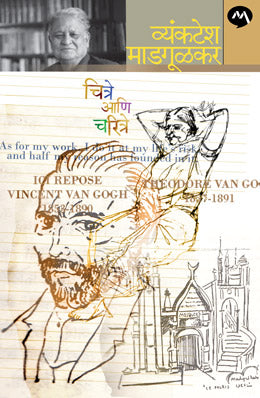 व्यंकटेश
माडगूळकर
चित्रे
आणि
चरित्रे
As for my work, I do it at my life's risk,
and half my reason has founded in it.
ICI REPOSE
VINCENT VAN GOGH
1853-1890
THEODORE VAN GO
1857-1891